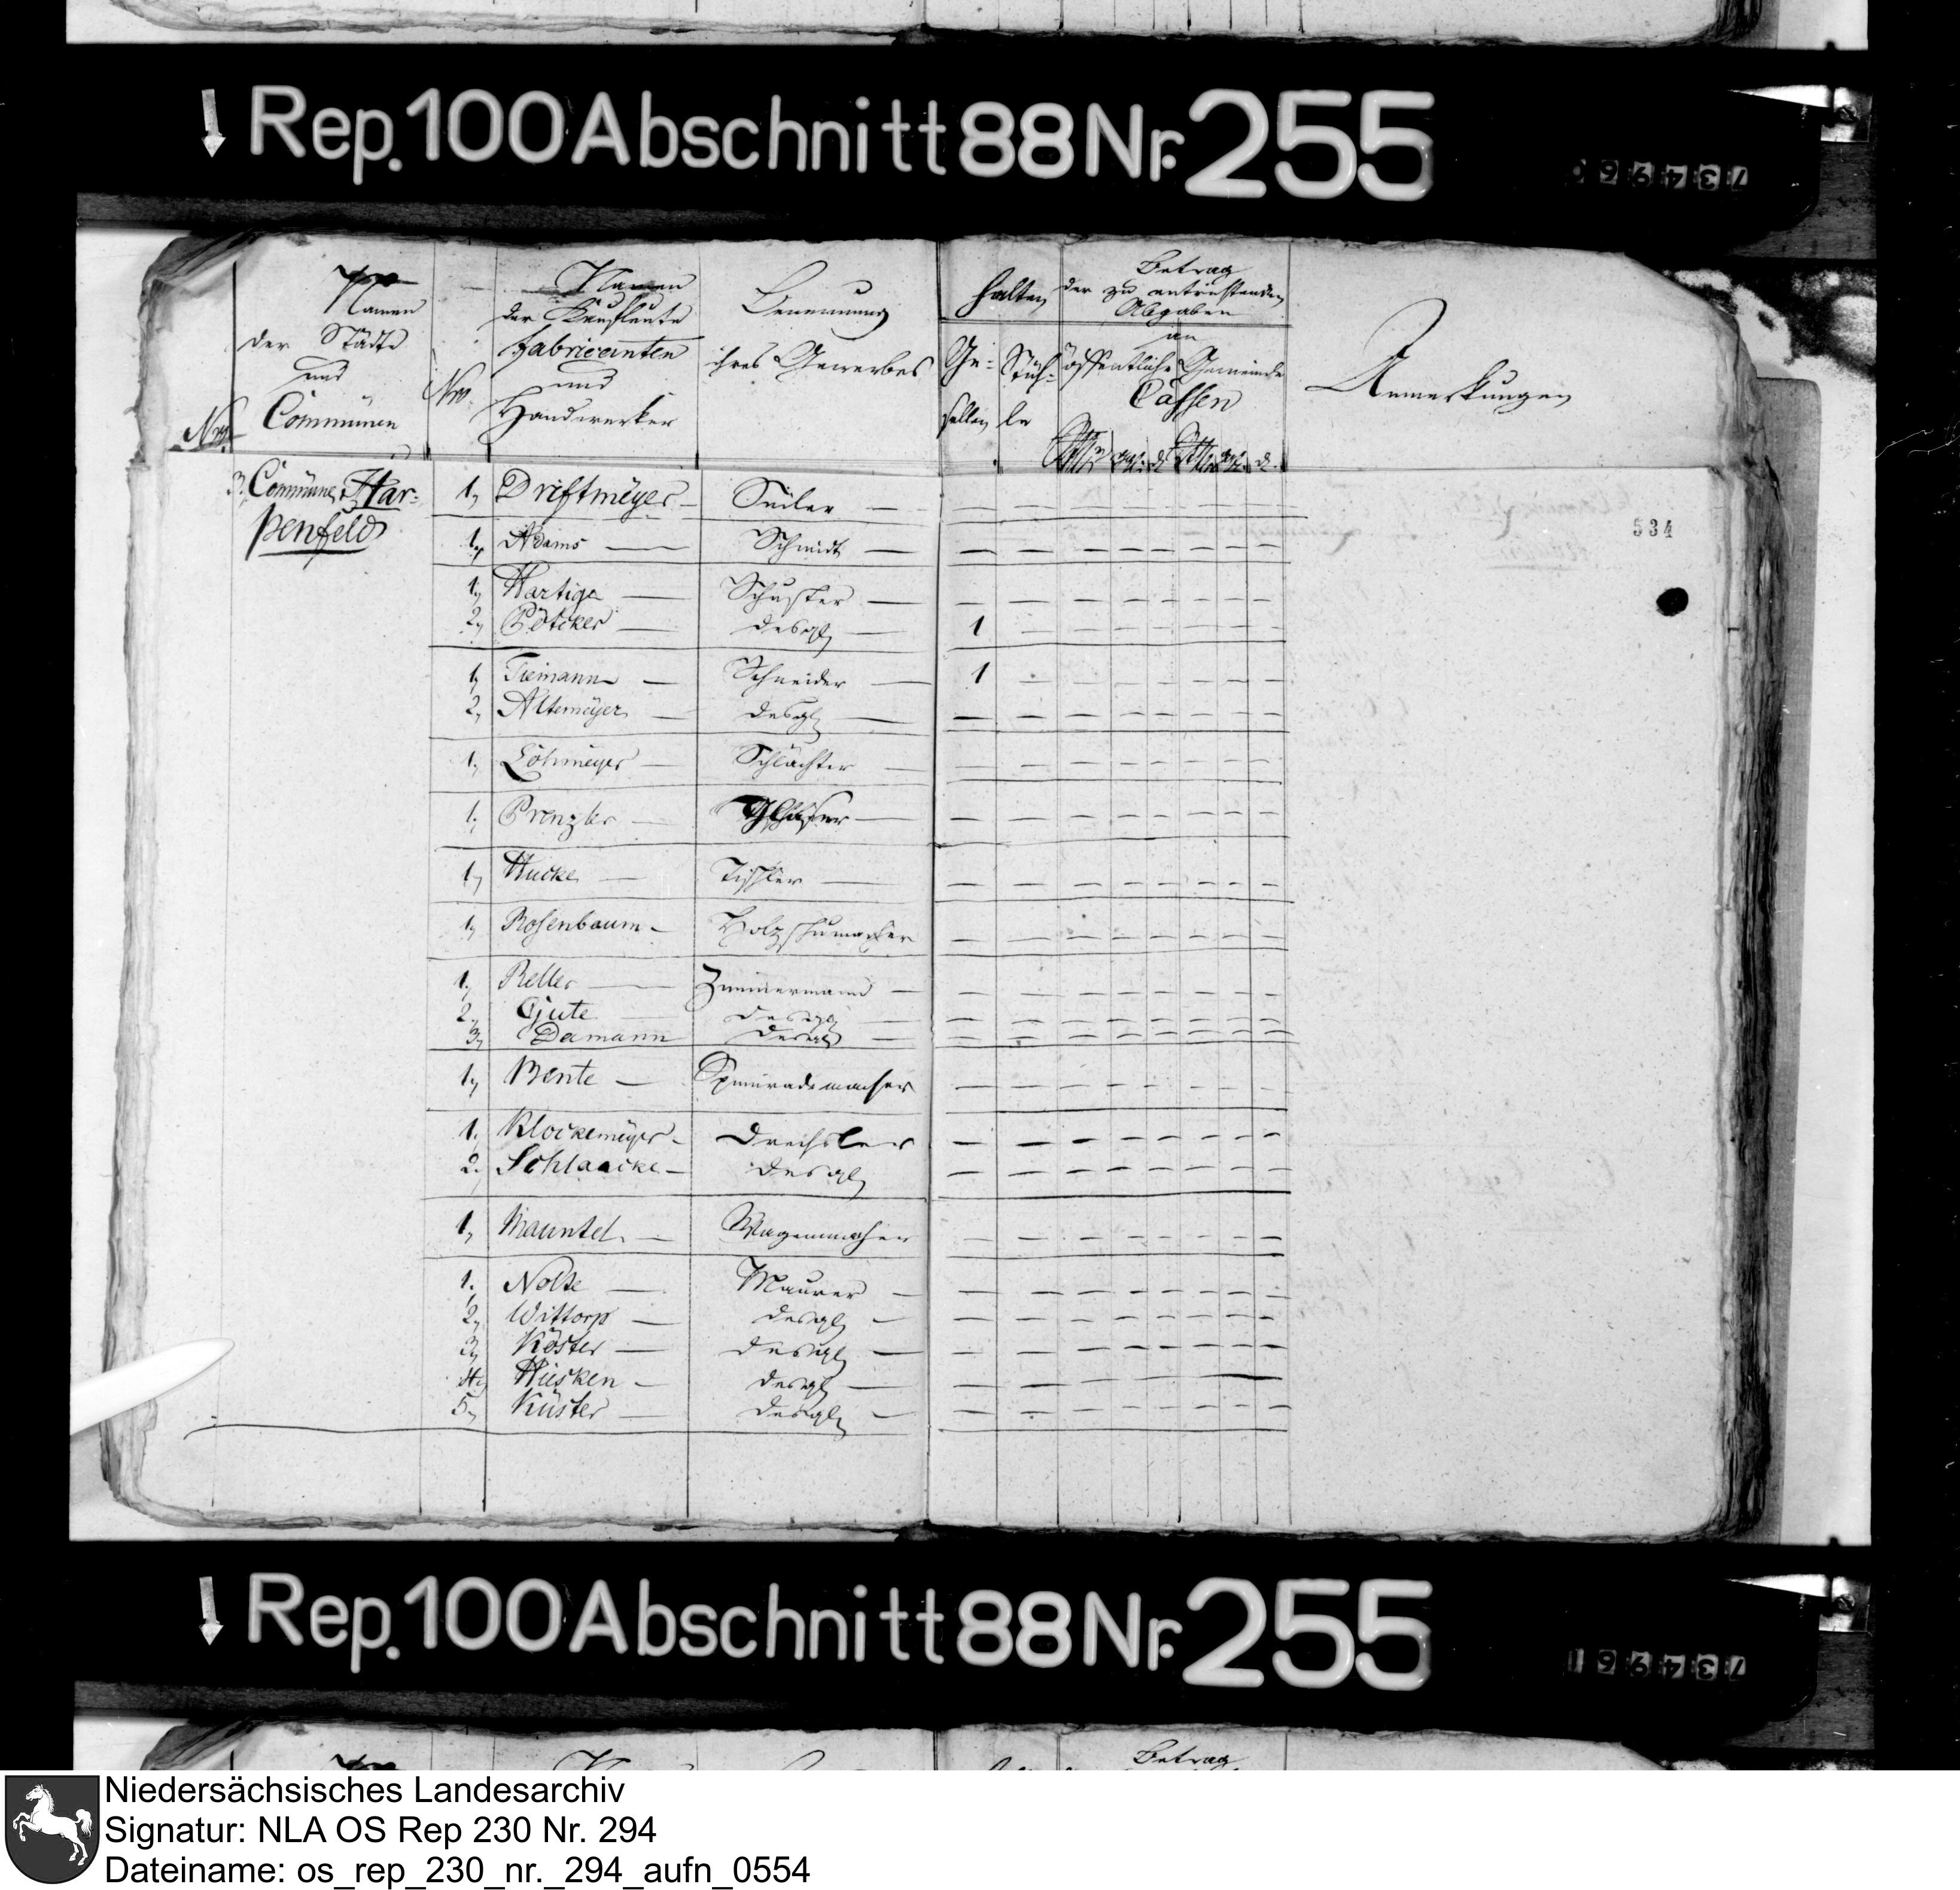 Rep. 100 Abschnitt 88 Nr. 255
734960
Namen der Städte und Communen
Nro.
Namen der Kaufleute Fabricanten und Handwerker
Benennung ihres Gewerbes
halten
Ge-sellen
Stüh-le
Betrag der zu entrichtenden Abgaben an öffentliche Gemeinde Cassen
Anmerkungen
3. Commune Har-
penfeld
534
1, Driftmeÿer — Seiler — — —
1, Adams — Schmidt — — —
1, Hartige — Schuster — — —
2, Pötcker — desgl — 1 —
1, Tiemann — Schneider — 1 —
2, Altemeÿer — desgl — — —
1, Löhmeÿer — Schlächter — — —
1, Prenzler — Gläser — — —
1, Hucke — Tischler — — —
1, Rosenbaum — Holzschumacher — —
1, Reller — Zimmermann — — —
2, Gute — desgl — — —
3, Damann desgl — — —
1, Bente — Spinnrademacher — —
1. Klockemeÿer — Drechsler — —
2. Schlaacke — desgl — —
1, Mauntel — Wagenmacher — —
1. Nolte — Maurer — — —
2, Wittorp — desgl — — —
3, Köster — desgl — — —
4, Hüsken — desgl — — —
5, Küster — desgl — — —
Rep. 100 Abschnitt 88 Nr. 255
734961
Betrag
Niedersächsisches Landesarchiv
Signatur: NLA OS Rep 230 Nr. 294
Dateiname: os_rep_230_nr._294_aufn_0554